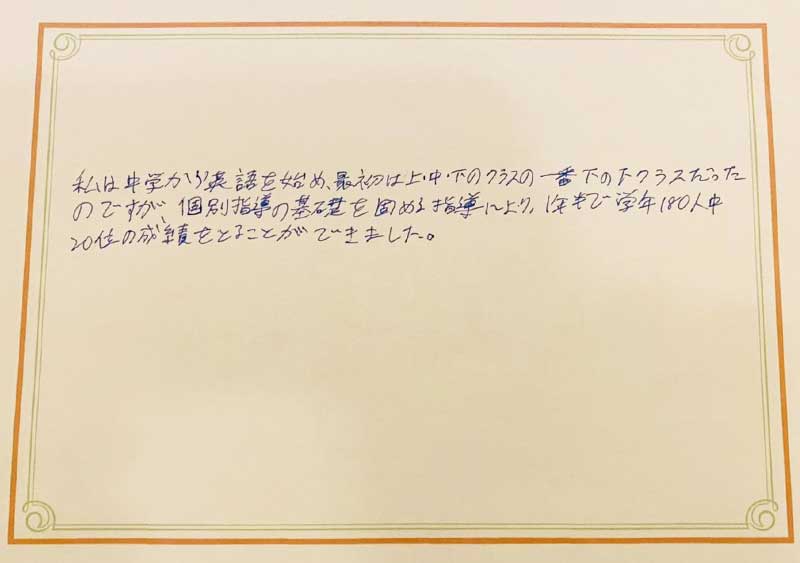 私は中学から英語を始め、最初は上・中・下のクラスの一番下の下クラスだった
のですが、個別指導の基礎を固める指導により、1年半で学年180人中
20位の成績をとることができました。